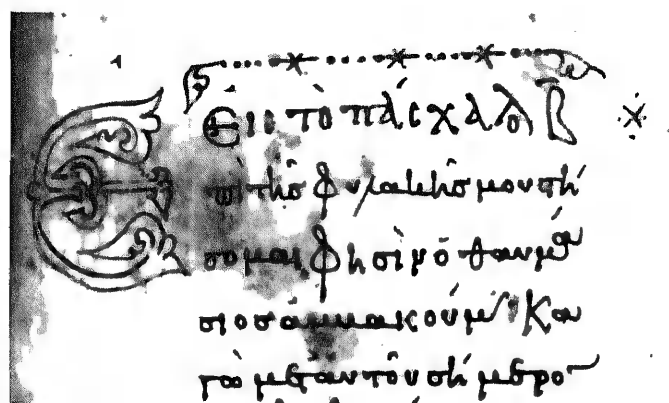 Εἰς τὸ πάσχα λο Β
Ἐπὶ τῆς φυλακῆς μου στή
σομαι φησὶν ὁ θαυμά
σιος ἀμβακούμ· Κα
γὼ μετ' αὐτοῦ σήμερο